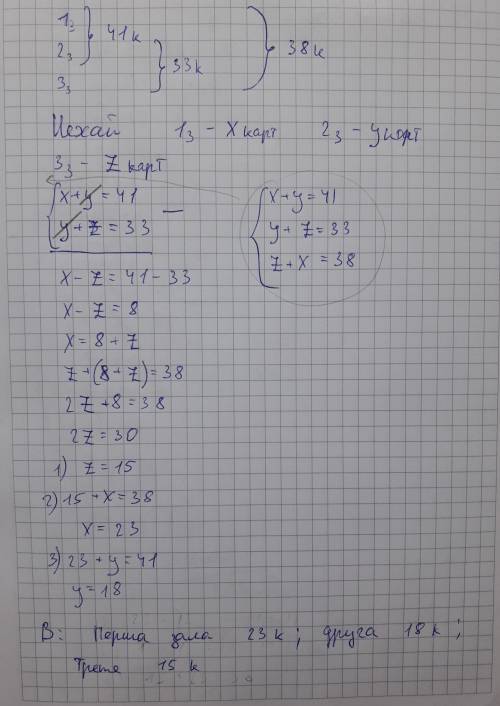 1з } 41к
2з } 33к } 38к
3з
Нехай 1з - x карт 2з - y карт
3з - z карт
{ x + y = 41 { x + y = 41
{ y + z = 33 — { y + z = 33
{ z + x = 38
x - z = 41 - 33
x - z = 8
x = 8 + z
z + (8 + z) = 38
2z + 8 = 38
2z = 30
1) z = 15
2) 15 + x = 38
x = 23
3) 23 + y = 41
y = 18
В: Перша зала 23 к ; друга 18 к ;
Третя 15 к